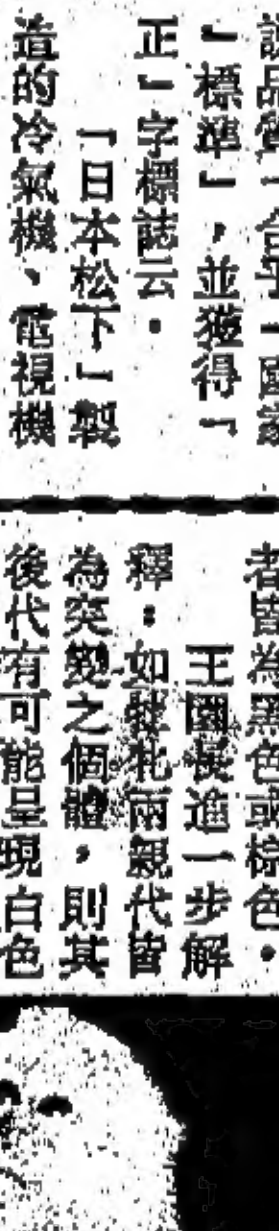 」標準」，並獲得「
正」字標誌云。
「日本松下」製
造的冷氣機、電視機
者皆為黑色或棕色。
王園長進一步解
釋：如雙牝兩親代皆
為突變之個體，則其
後代有可能呈現白色